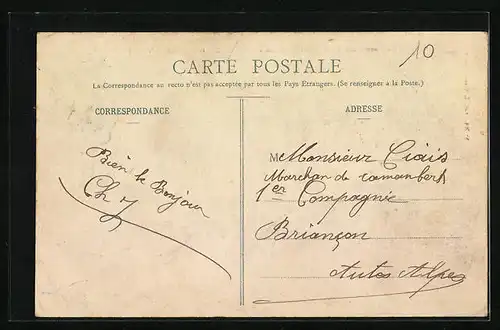 10
CARTE POSTALE
La Correspondance au recto n'est pas acceptée par tous les Pays Etrangers. (Se renseigner à la Poste.)
CORRESPONDANCE
ADRESSE
Bien le Bonjour
Ch J
M Monsieur Ciais
Marchan de camanbert
1er Compagnie
Briançon
Autes Alpes